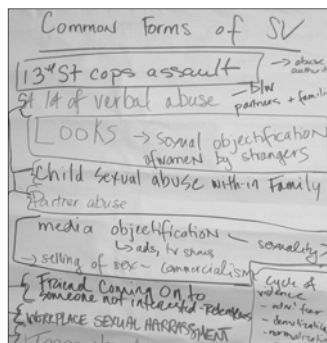 Common Forms of SV
13th St cops assault → abuse
St lt of verbal abuse – btw
partners + famili
LOOKS → sexual objectification
of women by strangers
Child Sexual abuse with-in Family
Partner abuse
media objectification – sexuality
↳ ads, tv shows
→ selling of sex – commercialism
Friend Coming On to
someone not interested
WORKPLACE SEXUAL HARRASSMENT
cycle of
violence